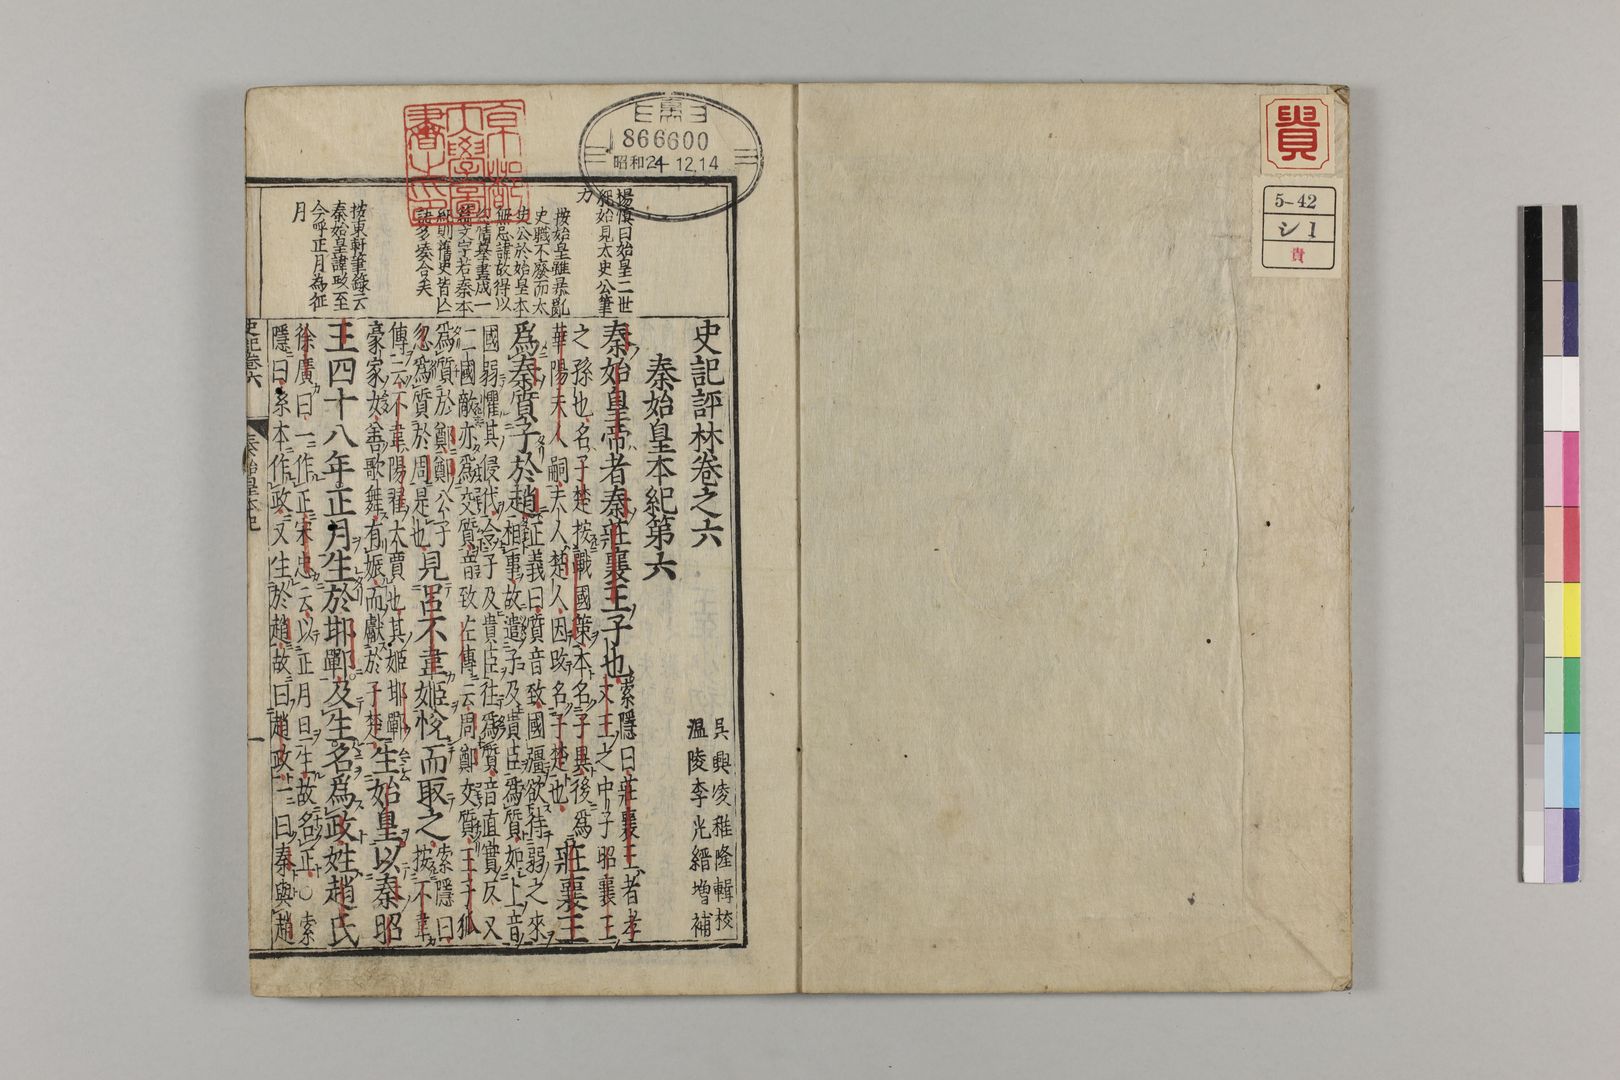 貴
5-42
シ1
貴
京都
大學圖
書之印
866600
昭和24 12.14
史記評林卷之六
吳興凌稚隆輯校
溫陵李光縉增補
秦始皇本紀第六
楊慎曰始皇二世
紀始見太史公筆
力
按始皇雖暴亂
史職不廢而太
史公於始皇本
無忌諱故得以
紀則舊史皆亡
諸多湊合矣
按東軒筆錄云
秦始皇諱政至
今呼正月為征
月
秦始皇帝者秦莊襄王子也索隱曰莊襄王者孝
文王之中子昭襄王
之孫也名子楚按戰國策本名子異後為
華陽夫人嗣夫人楚人因改名子楚也莊襄王
為秦質子於趙正義曰質音致國彊欲待弱之來
相事故遣子及貴臣為質如上音
國弱懼其侵伐令子及貴臣往為質音直實反又
二國敵亦為交質音致左傳云周鄭交質王子狐
為質於鄭鄭公子
忽為質於周是也見呂不韋姬悅而取之索隱曰
按不韋
傳云不韋陽翟大賈也其姬邯鄲
豪家女善歌舞有娠而獻於子楚生始皇以秦昭
王四十八年正月生於邯鄲及生名為政姓趙氏
徐廣曰一作正宋忠云以正月旦生故名正○索
隱曰系本作政又生於趙故曰趙政一曰秦與趙
史記卷六
秦始皇本紀
一